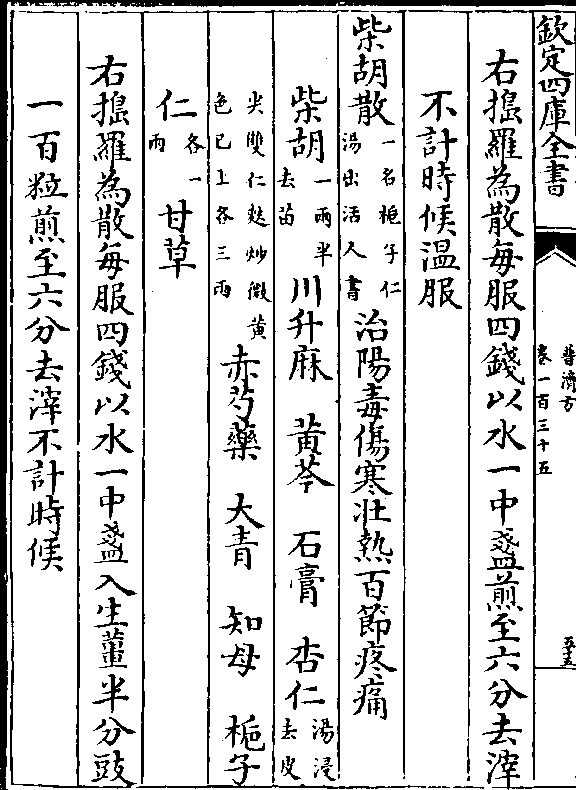 欽定四庫全書
普濟方
卷一百三十五
五十五
右搗羅為散每服四錢以水一中盞煎至六分去滓
不計時候温服
柴胡散一名梔子仁湯出活人書治陽毒傷寒壯熱百節疼痛
柴胡一兩半去苗川升麻 黃芩 石膏 杏仁湯浸去皮
尖雙仁麩炒微黃色已上各三兩赤芍藥 大青 知母 梔子
仁各一兩甘草
右搗羅為散每服四錢以水一中盞入生薑半分豉
一百粒煎至六分去滓不計時候